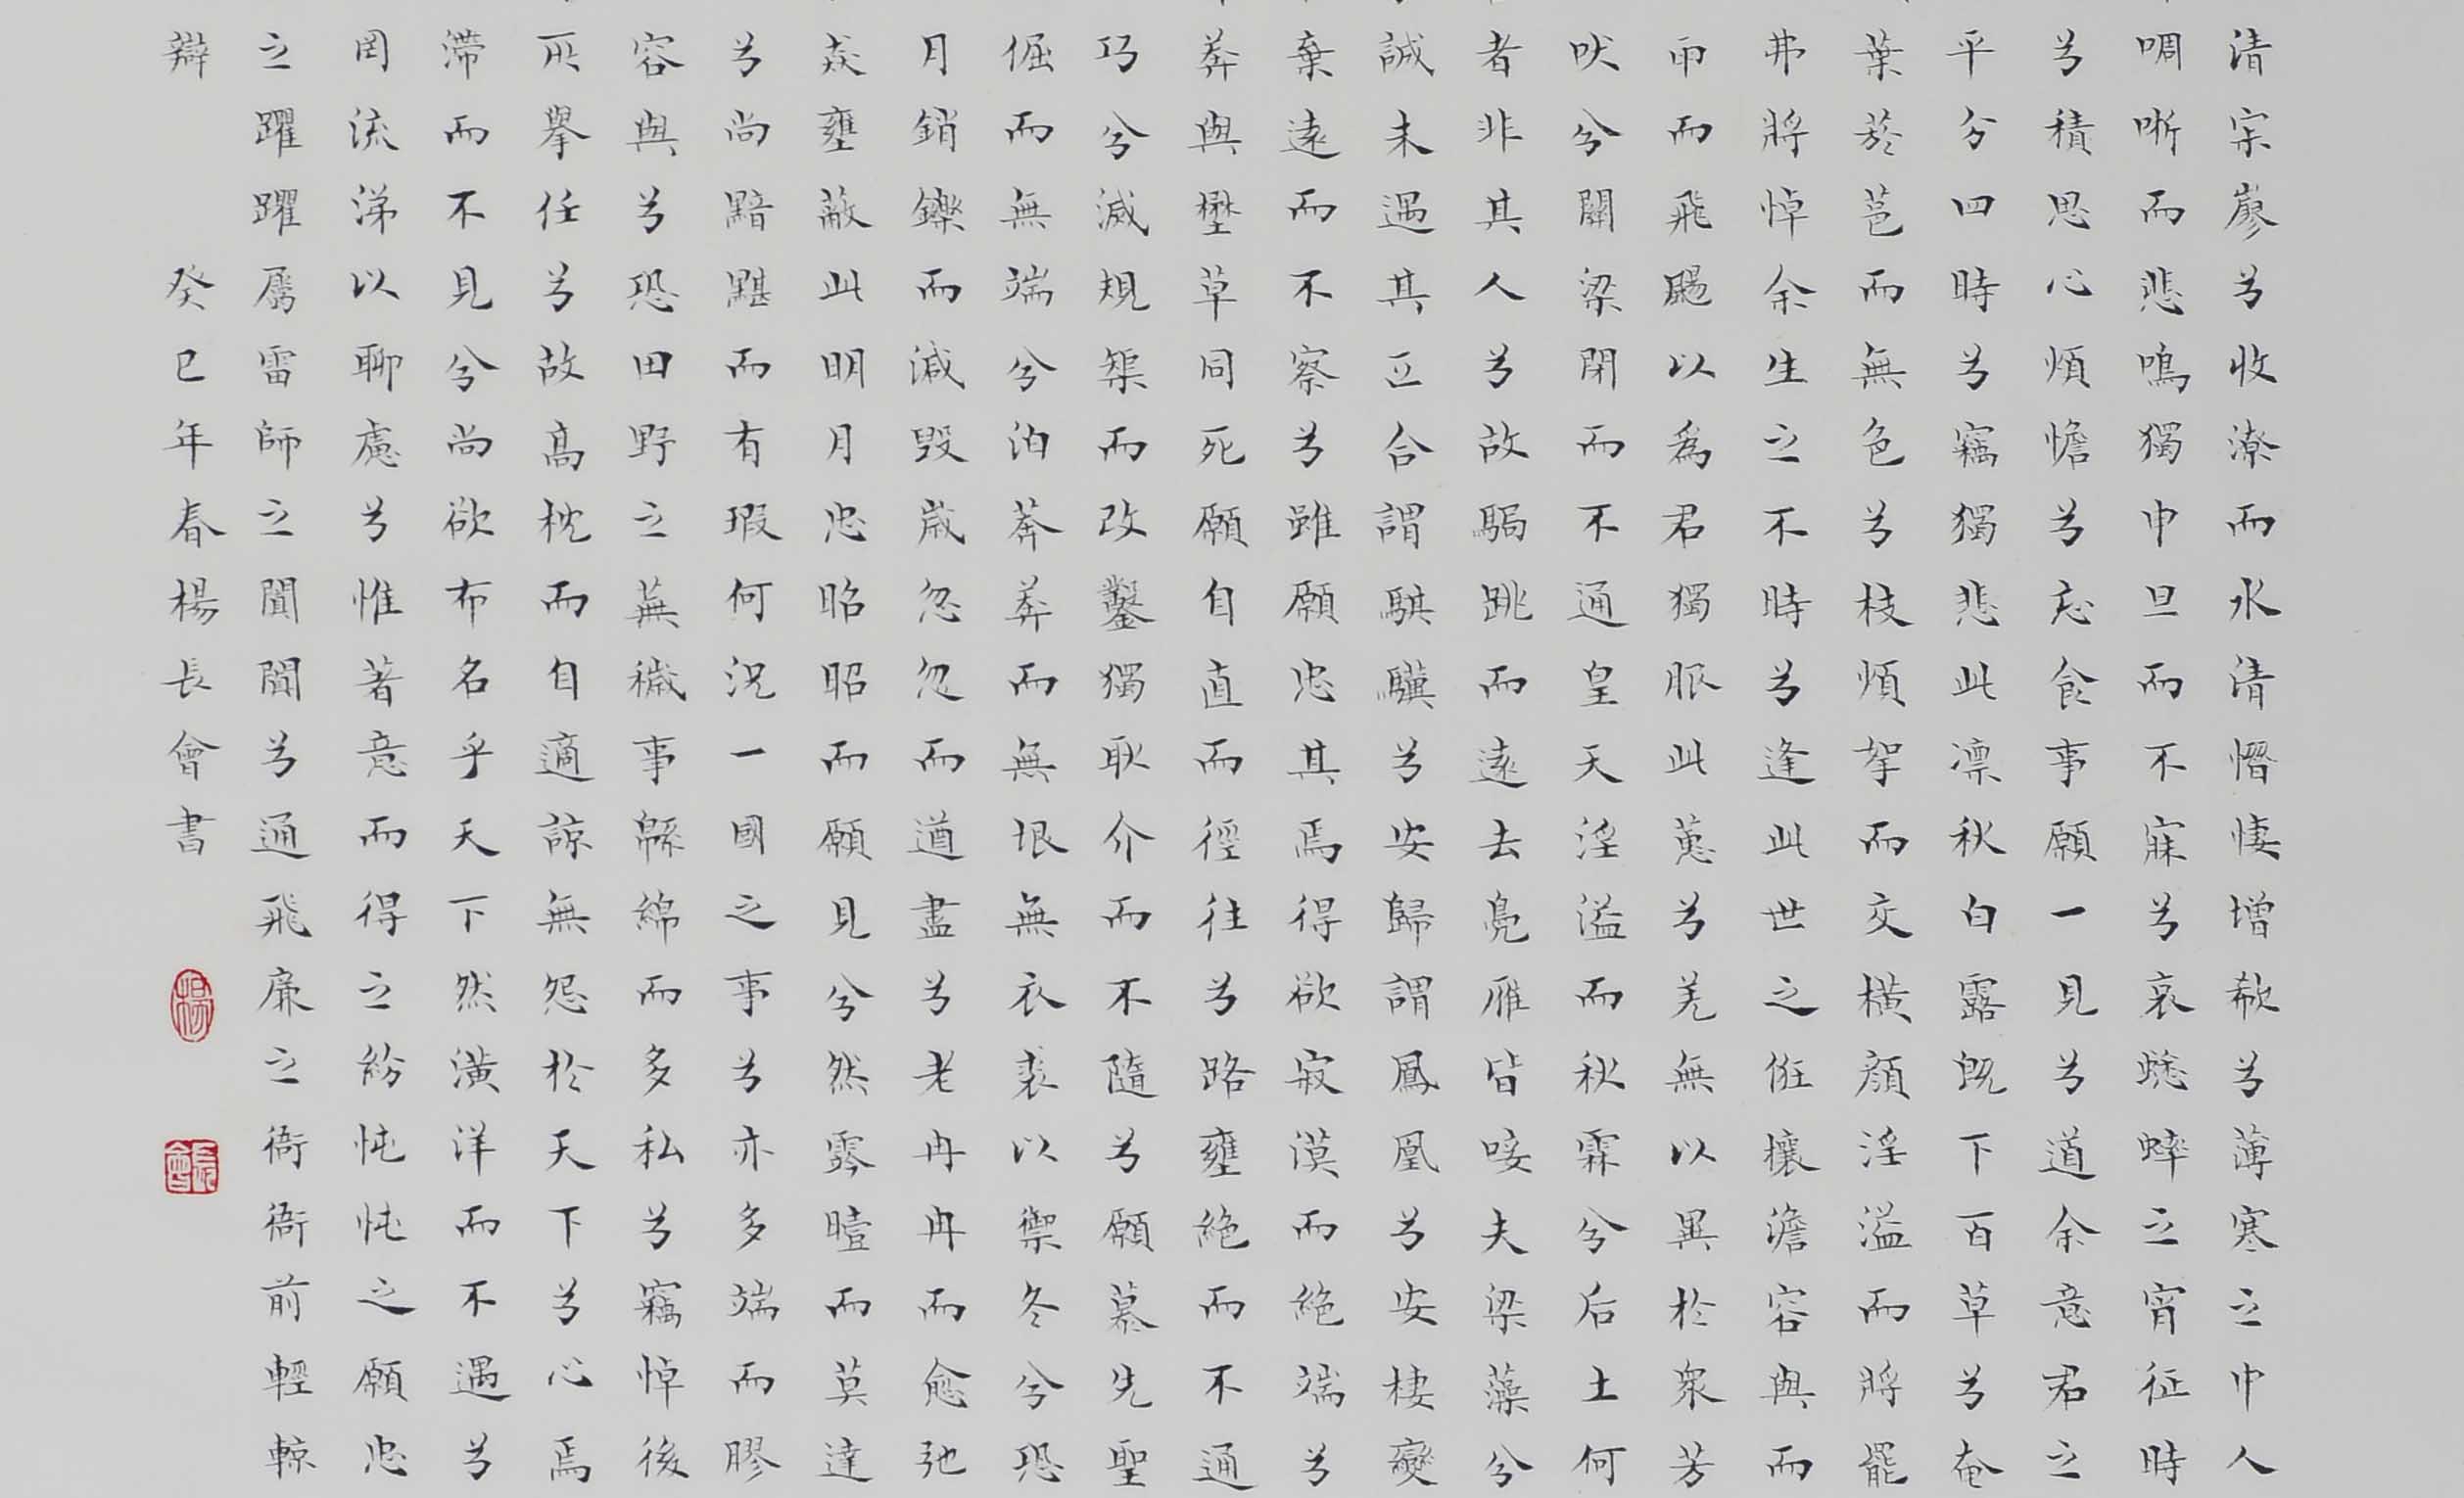 清宋廖兮收潦而水清憯悽增欷兮薄寒之中人
啁哳而悲鳴獨申旦而不寐兮哀蟋蟀之宵征時
兮積思心煩憺兮忘食事願一見兮道余意君之
平分四時兮竊獨悲此凛秋白露既下百草兮奄
葉菸芭而無色兮枝煩挐而交橫顏淫溢而將罷
弗將悼余生之不時兮逢此世之俇攘澹容與而
雨而飛颺以為君獨服此蕙兮羌無以異於衆芳
吠兮關梁閉而不通皇天淫溢而秋霖兮后土何
者非其人兮故駶跳而遠去鳧雁皆唼夫梁藻兮
誠未遇其匹合謂騏驥兮安歸謂鳳凰兮安棲變
棄遠而不察兮雖願忠其焉得欲寂漠而絕端兮
莽與壄草同死願自直而徑往兮路壅絕而不通
巧兮滅規榘而改鑿獨耿介而不隨兮願慕先聖
倔而無端兮泊莽莽而無垠無衣裘以禦冬兮恐
月銷鑠而減毀歲忽忽而遒盡兮老冉冉而愈弛
猋壅蔽此明月忠昭昭而願見兮然霠曀而莫達
兮尚黯黮而有瑕何況一國之事兮亦多端而膠
容與兮恐田野之蕪穢事緜綿而多私兮竊悼後
所舉任兮故高枕而自適諒無怨於天下兮心焉
滯而不見兮尚欲布名乎天下然潢洋而不遇兮
罔流涕以聊慮兮惟著意而得之紛忳忳之願忠
之躍躍屬雷師之闐闐兮通飛廉之衙衙前輕輬
辯 癸巳年春楊長會書
楊
長會